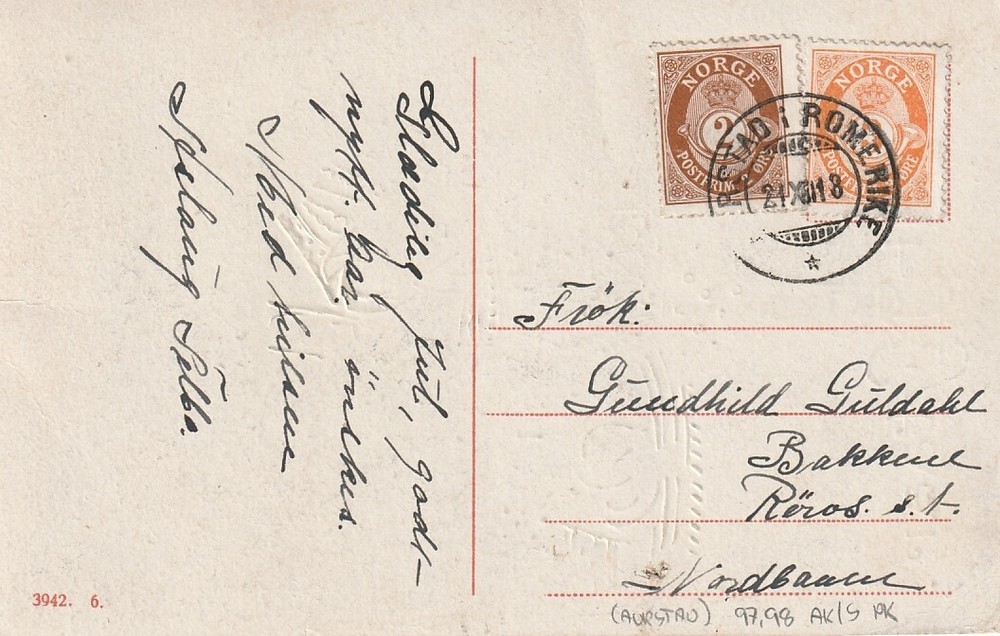 Glædelig Jul, godt
nytt Aar. önskes.
Med hilsen
Aslaug
NORGE
POSTFRIM. 2 ØRE
NORGE
ØRE
RSTAD i ROMERIKE
21 XII 18
Frök:
Gundhild Guldahl
Bakkene
Röros. s.t.
Nordbanen
3942. 6.
(AURSTAD) 97,98 AK/S PK